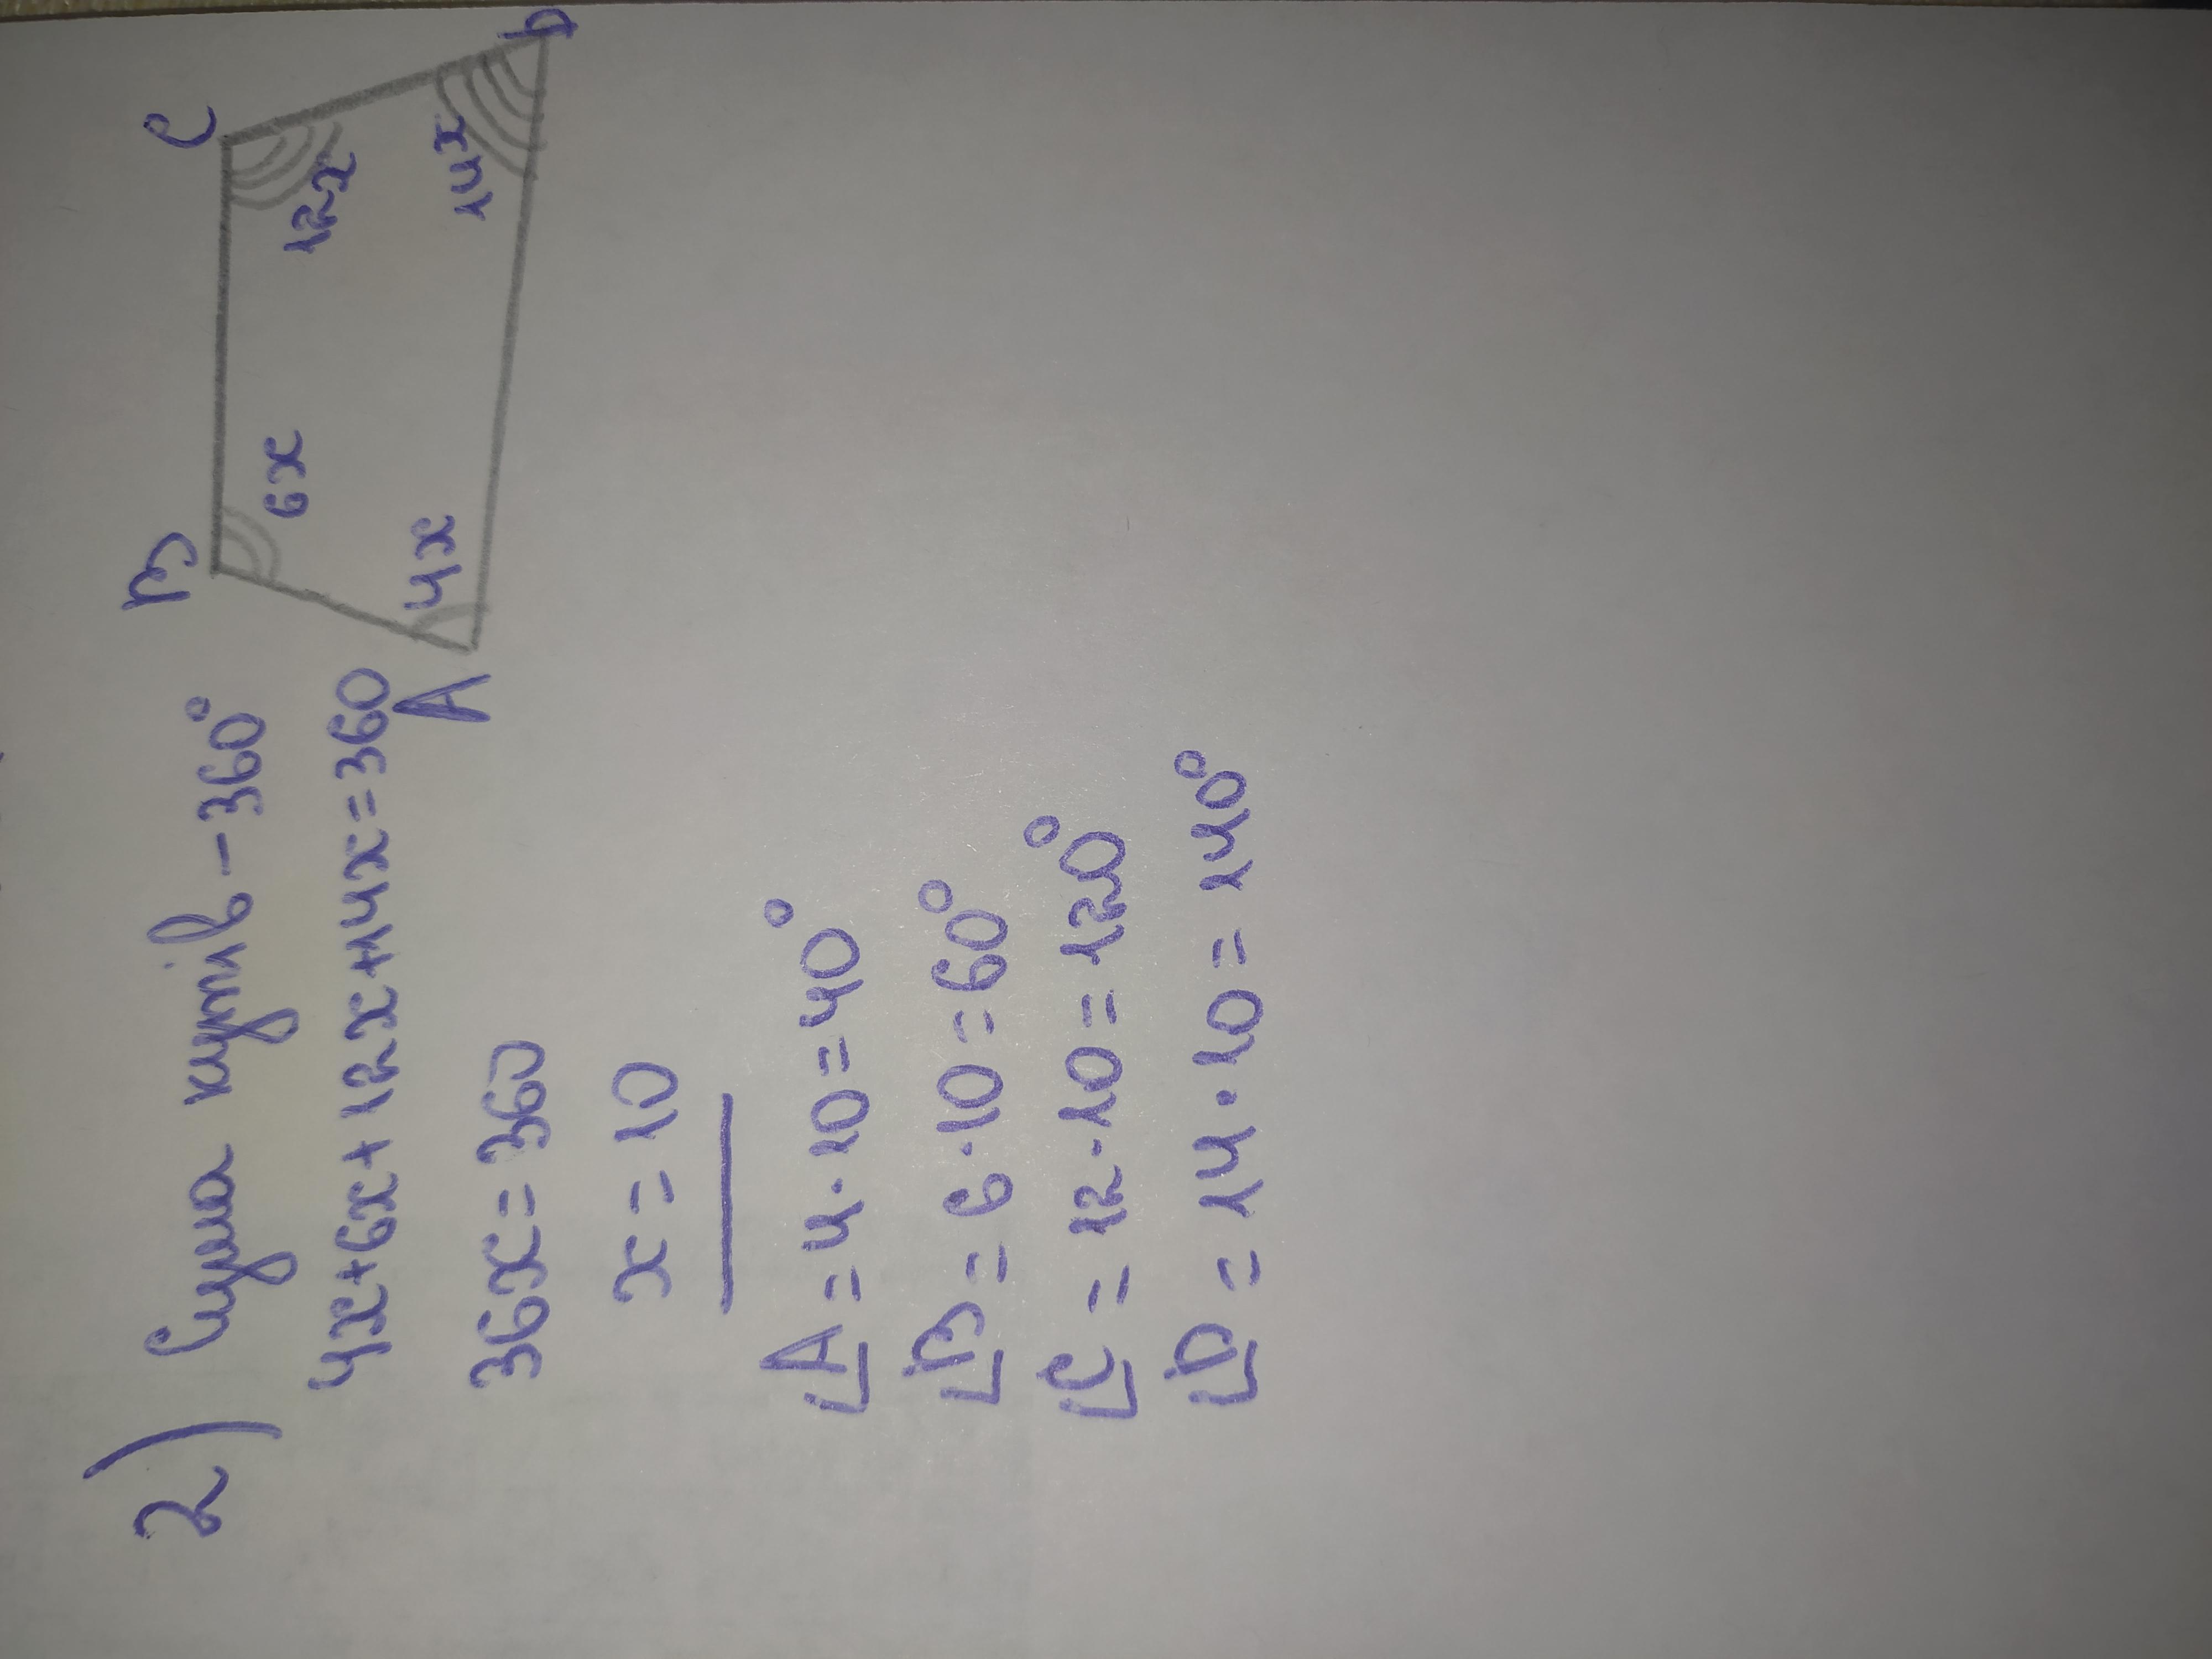 2) Сума кутів - 360°
4x+6x+12x+14x=360
36x=360
x=10
∠A=4·10=40°
∠B=6·10=60°
∠C=12·10=120°
∠D=14·10=140°
B
C
6x
12x
4x
14x
A
D